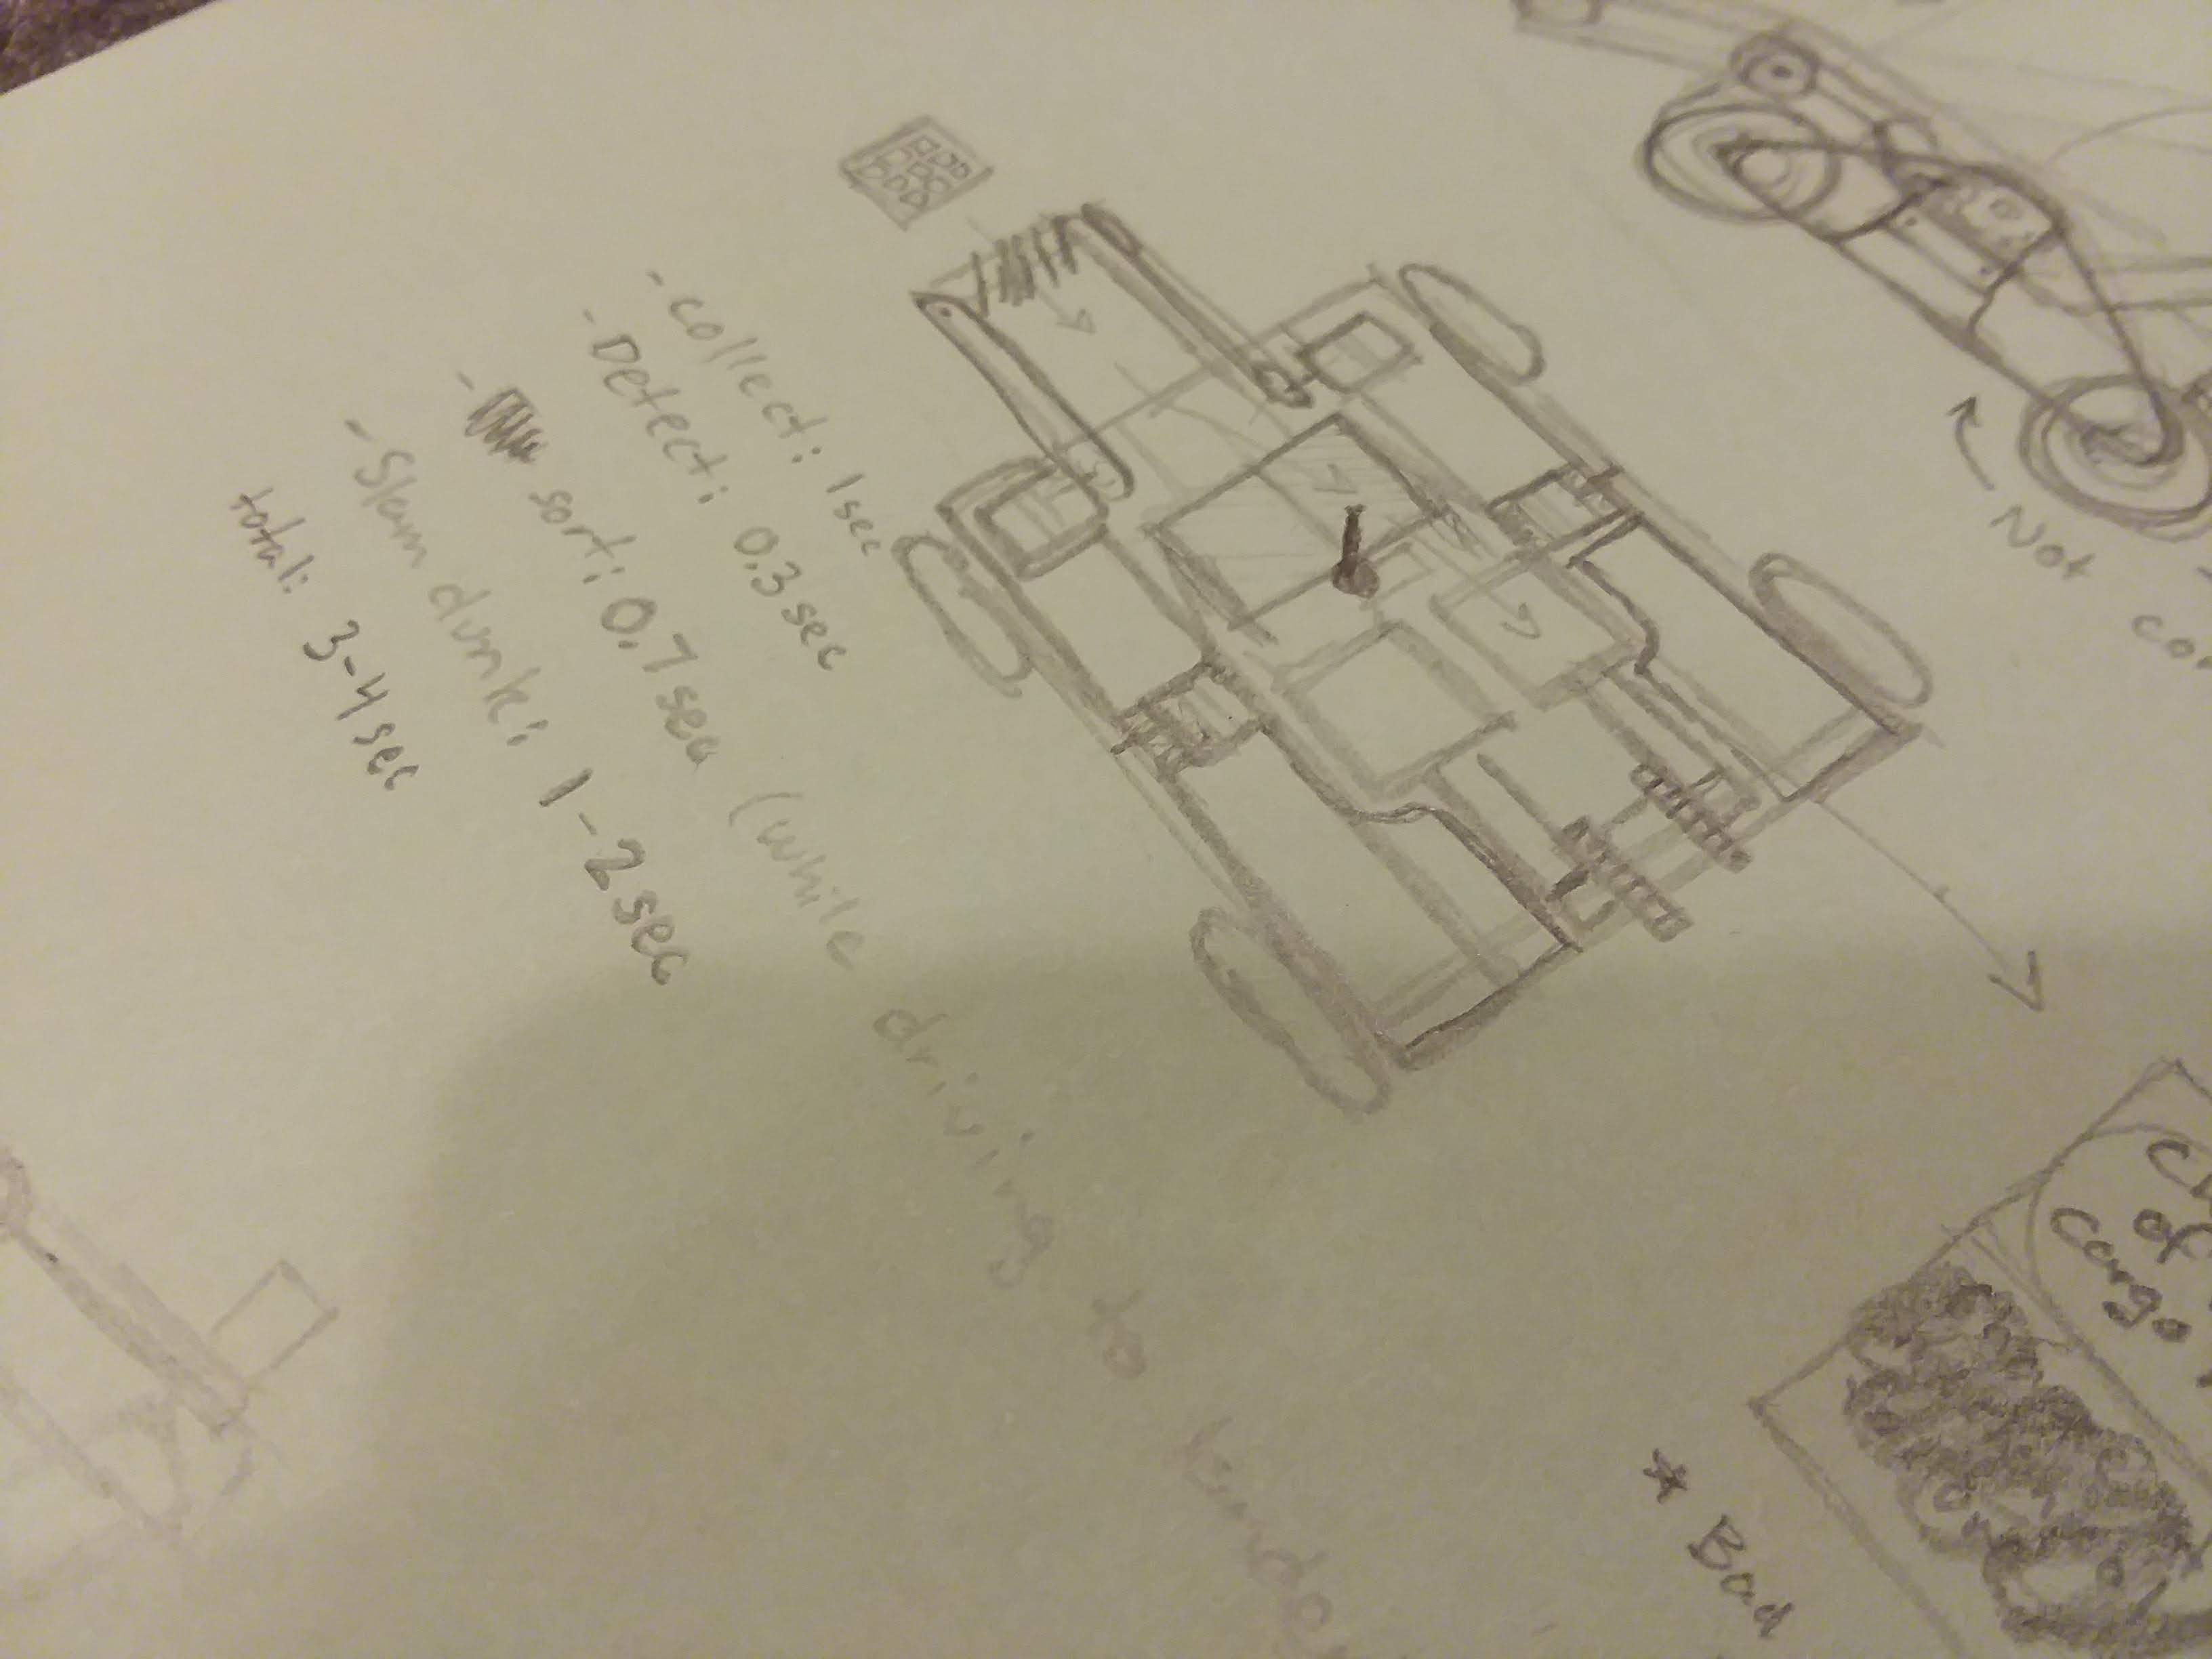 - collect: 1sec
- Detect: 0.3sec
- sort: 0.7sec (while driving to
- Slam dunk: 1-2sec
total: 3-4sec
Not
of
Cargo
* Bad